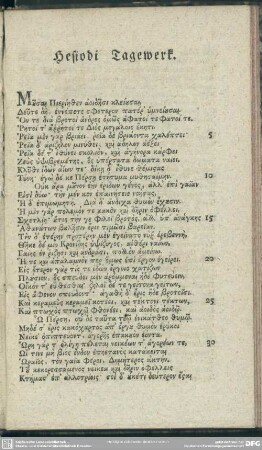 Hesiodi Tagewerk.
Μοῦσαι Πιερίηθεν ἀοιδῇσι κλείουσαι,
Δεῦτε δὴ, ἐννέπετε σφέτερον πατέρ' ὑμνείουσαι·
Ὅν τε διὰ βροτοὶ ἄνδρες ὁμῶς ἄφατοί τε φατοί τε,
Ῥητοί τ' ἄρρητοί τε Διὸς μεγάλοιο ἕκητι.
Ῥεῖα μὲν γὰρ βριάει, ῥεῖα δὲ βριάοντα χαλέπτει· 5
Ῥεῖα δ' ἀρίζηλον μινύθει, καὶ ἄδηλον ἀέξει·
Ῥεῖα δέ τ' ἰθύνει σκολιὸν, καὶ ἀγήνορα κάρφει
Ζεὺς ὑψιβρεμέτης, ὃς ὑπέρτατα δώματα ναίει.
Κλῦθι ἰδὼν ἀΐων τε· δίκῃ δ' ἴθυνε θέμιστας
Τύνη· ἐγὼ δέ κε Πέρσῃ ἐτήτυμα μυθησαίμην. 10
Οὐκ ἄρα μοῦνον ἔην ἐρίδων γένος, ἀλλ' ἐπὶ γαῖαν
Εἰσὶ δύω· τὴν μέν κεν ἐπαινήσειε νοήσας,
Ἡ δ' ἐπιμωμητή. Διὰ δ' ἄνδιχα θυμὸν ἔχουσιν.
Ἡ μὲν γὰρ πόλεμόν τε κακὸν καὶ δῆριν ὀφέλλει,
Σχετλίη· οὔτις τήν γε φιλεῖ βροτὸς, ἀλλ' ὑπ' ἀνάγκης 15
Ἀθανάτων βουλῇσιν ἔριν τιμῶσι βαρεῖαν.
Τὴν δ' ἑτέρην προτέρην μὲν ἐγείνατο νὺξ ἐρεβεννή,
Θῆκε δέ μιν Κρονίδης ὑψίζυγος, αἰθέρι ναίων,
Γαίης ἐν ῥίζῃσι καὶ ἀνδράσι, πολλὸν ἀμείνω.
Ἥ τε καὶ ἀπάλαμόν περ ὅμως ἐπὶ ἔργον ἐγείρει. 20
Εἰς ἕτερον γάρ τίς τε ἰδὼν ἔργοιο χατίζων
Πλούσιον, ὃς σπεύδει μὲν ἀρόμμεναι ἠδὲ φυτεύειν,
Οἶκόν τ' εὖ θέσθαι· ζηλοῖ δέ τε γείτονα γείτων,
Εἰς ἄφενον σπεύδοντ'· ἀγαθὴ δ' ἔρις ἥδε βροτοῖσι.
Καὶ κεραμεὺς κεραμεῖ κοτέει, καὶ τέκτονι τέκτων, 25
Καὶ πτωχὸς πτωχῷ φθονέει, καὶ ἀοιδὸς ἀοιδῷ.
Ὦ Πέρση, σὺ δὲ ταῦτα τεῷ ἐνικάτθεο θυμῷ·
Μηδέ σ' ἔρις κακόχαρτος ἀπ' ἔργου θυμὸν ἐρύκοι
Νείκε' ὀπιπτεύοντ' ἀγορῆς ἐπακουὸν ἐόντα.
Ὥρη γάρ τ' ὀλίγη πέλεται νεικέων τ' ἀγορέων τε, 30
ᾯ τινι μὴ βίος ἔνδον ἐπηετανὸς κατάκειται
Ὡραῖος, τὸν γαῖα φέρει, Δημήτερος ἀκτήν.
Τοῦ κεκορεσσάμενος νείκεα καὶ δῆριν ὀφέλλοις
Κτήμασ' ἐπ' ἀλλοτρίοις· σοὶ δ' οὐκέτι δεύτερον ἔσται